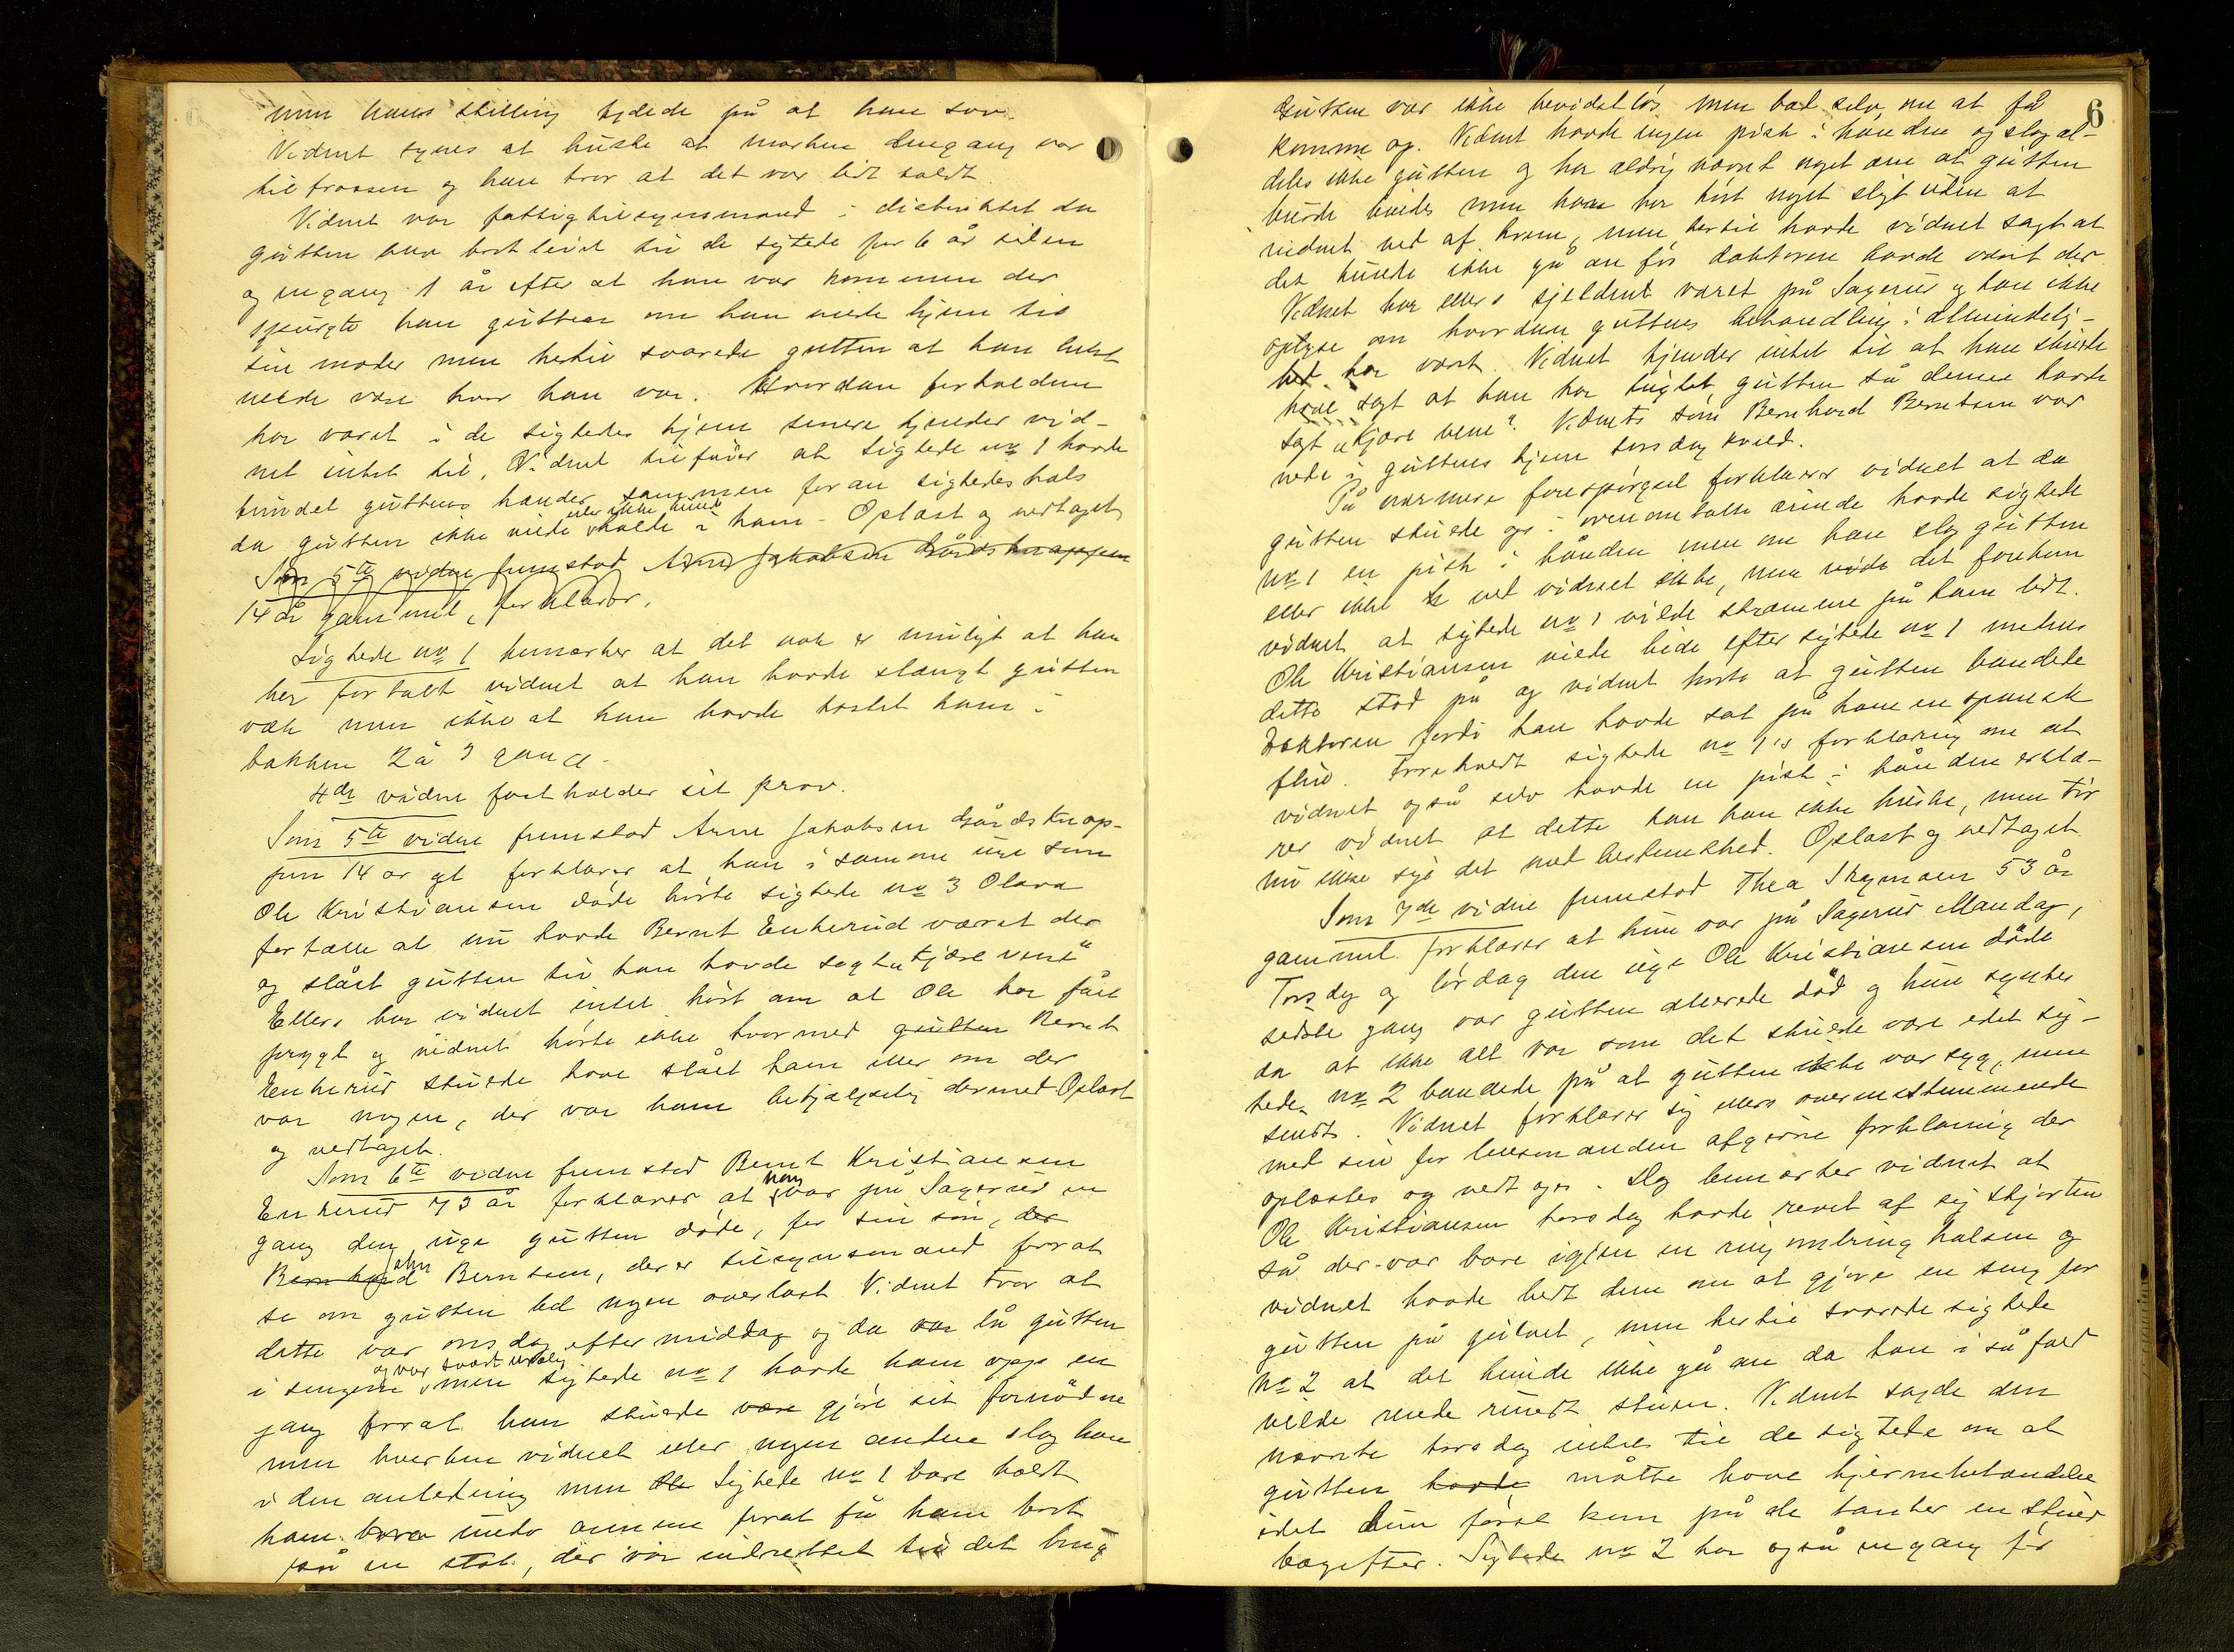 men hans stilling tydede på at han sov.
Vidnet synes at huske at marken dengang var
tilfrossen og han tror at det var lidt koldt.
Vidnet var fattigtilsynsmand i distriktet da
gutten blev bortleiet til de sigtede for 6 år siden
og engang 1 år efter at han var kommen der
spurgte han gutten om han vilde hjem til
sin moder men hertil svarede gutten at han helst
vilde være hvor han var. Hvordan forholdene
har været i de sigtedes hjem senere kjender vid-
net intet til. Vidnet tilføier at sigtede no 1 havde
bundet guttens hænder sammen foran sigtedes hals
da gutten ikke vilde eller ikke kunde holde i ham. Oplæst og vedtaget
Som 5te vidne fremstod Arne Jakobsen Gårdsknappen
14 år gammel, forklarer,
Sigtede no 1 bemærker at det nok er muligt at han
har fortalt vidnet at han havde slængt gutten
væk men ikke at han havde kastet ham i
bakken 2 à 3 gange.
4de vidne fastholder sit prov.
Som 5te vidne fremstod Arne Jakobsen Gårdsknap-
pen 14 år gl forklarer at han i samme uge som
Ole Kristiansen døde hørte sigtede no 3 Olava
fortælle at nu havde Bernt Enkerud været der
og slået gutten til han havde sagt „kjære vene“
Ellers har vidnet intet hørt om at Ole har fået
prygl og vidnet hørte ikke hvormed gutten Bernt
Enkerud skulde have slået ham eller om der
var nogen, der var ham behjælpelig dermed. Oplæst
og vedtaget.
Som 6te vidne fremstod Bernt Kristiansen
Enkerud 73 år forklarer at han var på Sagerud en
gang den uge gutten døde, for sin søn, der
Bernhard Berntsen, der er tilsynsmand forat
se om gutten led nogen overlast. Vidnet tror at
dette var onsdag eftermiddag og da var lå gutten
i sengen og var svært urolig, men sigtede no 1 havde ham opp en
gang forat han skulde være gjøre sit fornødne
men hverken vidnet eller nogen anden slog ham
i den anledning men Ole Sigtede no 1 bare holdt
ham bare under armene forat få ham bort
på en stol, der var indrettet til det brug
6
Gutten var ikke bevidstløs men bad selv om at få
komme op. Vidnet havde ingen pisk i hånden og slog al-
deles ikke gutten og har aldrig nævnt noget om at gutten
burde bindes men han har hørt noget sligt uden at
vidnet ved af hvem, men hertil havde vidnet sagt at
det kunde ikke gå an før doktoren havde været der
Vidnet har ellers sjeldent været på Sagerud og kan ikke
oplyse om hvordan guttens behandling i almindelig-
hed har været. Vidnet kjender intet til at han skulde
have sagt at han har tugtet gutten så denne havde
sagt „kjære vene“. Vidnets søn Bernhard Berntsen var
nede i guttens hjem torsdag kveld.
På nærmere forespørgsel forklarer vidnet at da
gutten skulde op i ovenomtalte ærinde havde sigtede
no 1 en pisk i hånden men om han slog gutten
eller ikke ved vidnet ikke, men det forekom
vidnet at sigtede no 1 vilde skræmme på ham lidt.
Ole Kristiansen vilde bide efter sigtede no 1 medens
dette stod på og vidnet hørte at gutten bandede
doktoren fordi han havde sat på ham en spansk
flue. Foreholdt sigtede no 1's forklaring om at
vidnet også selv havde en pisk i hånden erklæ-
rer vidnet at dette kan han ikke huske, men tør
nu ikke sige det med bestemthed. Oplæst og vedtaget.
Som 7de vidne fremstod Thea Skymoen 53 år
gammel forklarer at hun var på Sagerud Mandag,
Torsdag og lørdag den uge Ole Kristiansen døde
sidste gang var gutten allerede død og hun syntes
da at ikke alt var som det skulde være idet sig-
tede no 2 bandede på at gutten ikke var syg, men
sindt. Vidnet forklarer sig ellers overensstemmende
med sin for lensmanden afgivne forklaring der
oplæstes og vedtoges. Dog bemærker vidnet at
Ole Kristiansen torsdag havde revet af sig skjorten
så der var bare igjen en ring omkring halsen og
vidnet havde bedt dem om at gjøre en seng for
gutten på gulvet, men hertil svarede sigtede
no 2 at det kunde ikke gå an da han i så fald
vilde rende rundt stuen. Vidnet sagde den
nævnte torsdag intet til de sigtede om at
gutten havde måtte have hjernebetændelse
idet hun først kom på de tanker en stund
bagefter. Sigtede no 2 har også engang før